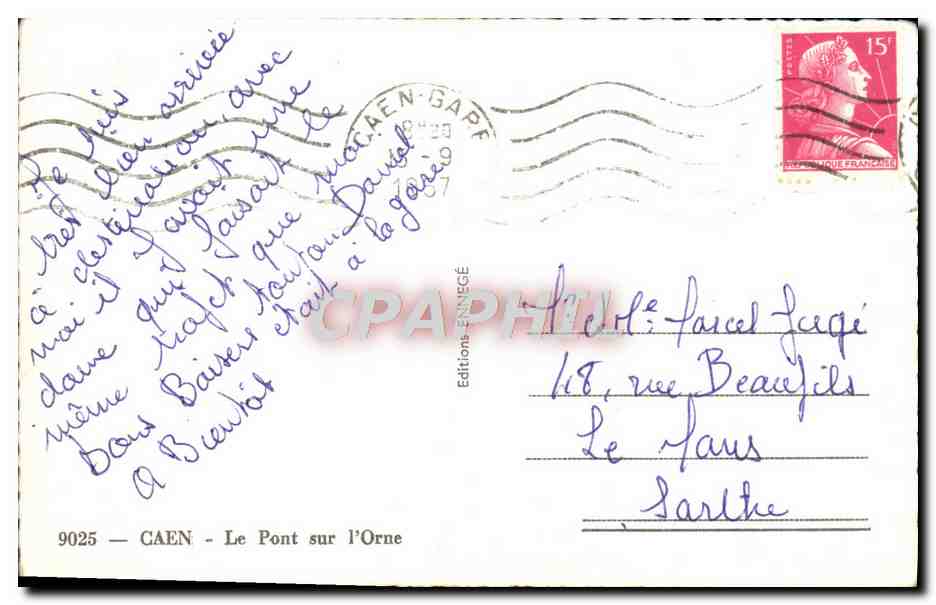 Je suis
très bien arrivée
à destination, avec
moi il y avait une
dame qui faisait le
même trajet que moi
Bons Baisers tonton Daniel
était à la gare
A Bientôt
CAEN-GARE
15F
POSTES
REPUBLIQUE FRANCAISE
CPAPHIL
Editions ENNEGÉ
Marcel Jugé
48, rue Beaufils
Le Mans
Sarthe
9025 — CAEN - Le Pont sur l'Orne